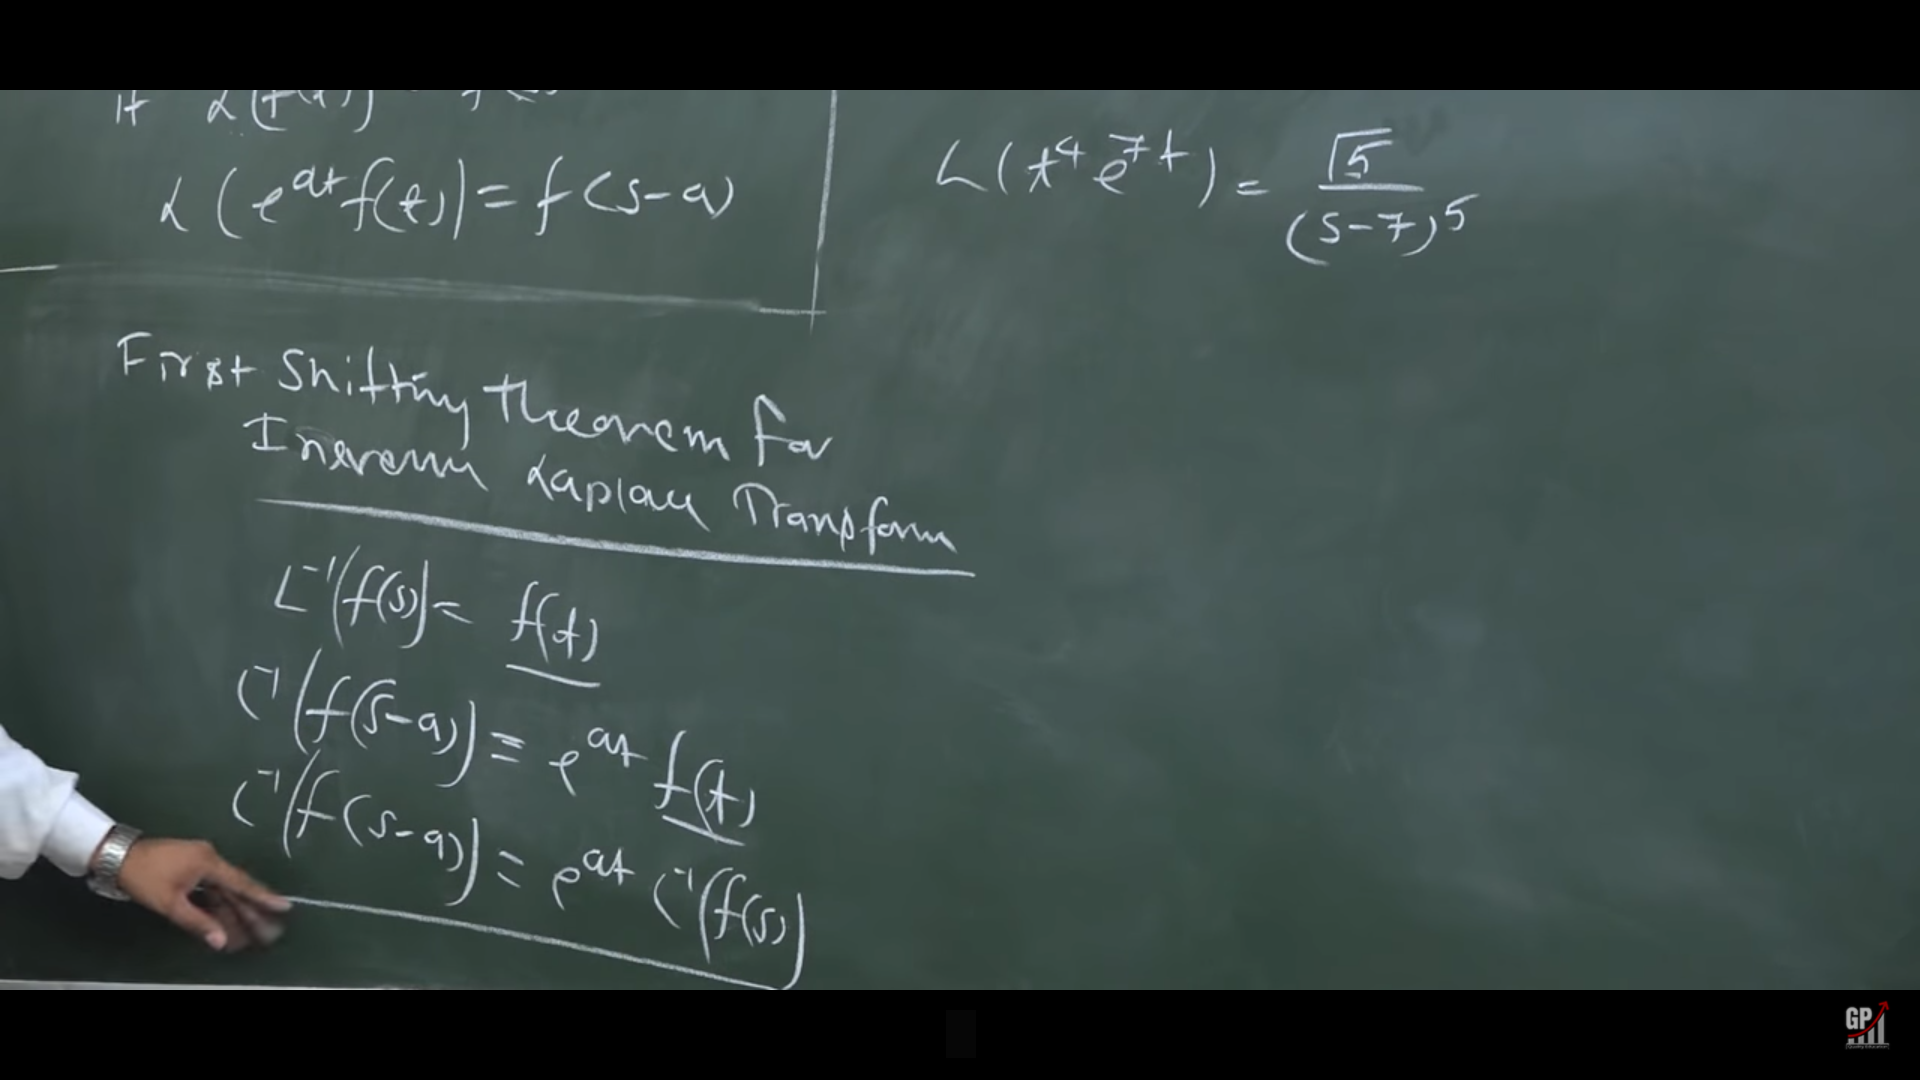 If L(f(t))
L(e^{at} f(t)) = f(s-a)
L(t^4 e^{7t}) = \frac{\sqrt{5}}{(s-7)^5}
First Shifting theorem for
Inverse Laplace Transform
L^{-1}(f(s)) = f(t)
L^{-1}(f(s-a)) = e^{at} f(t)
L^{-1}(f(s-a)) = e^{at} L^{-1}(f(s))
GP